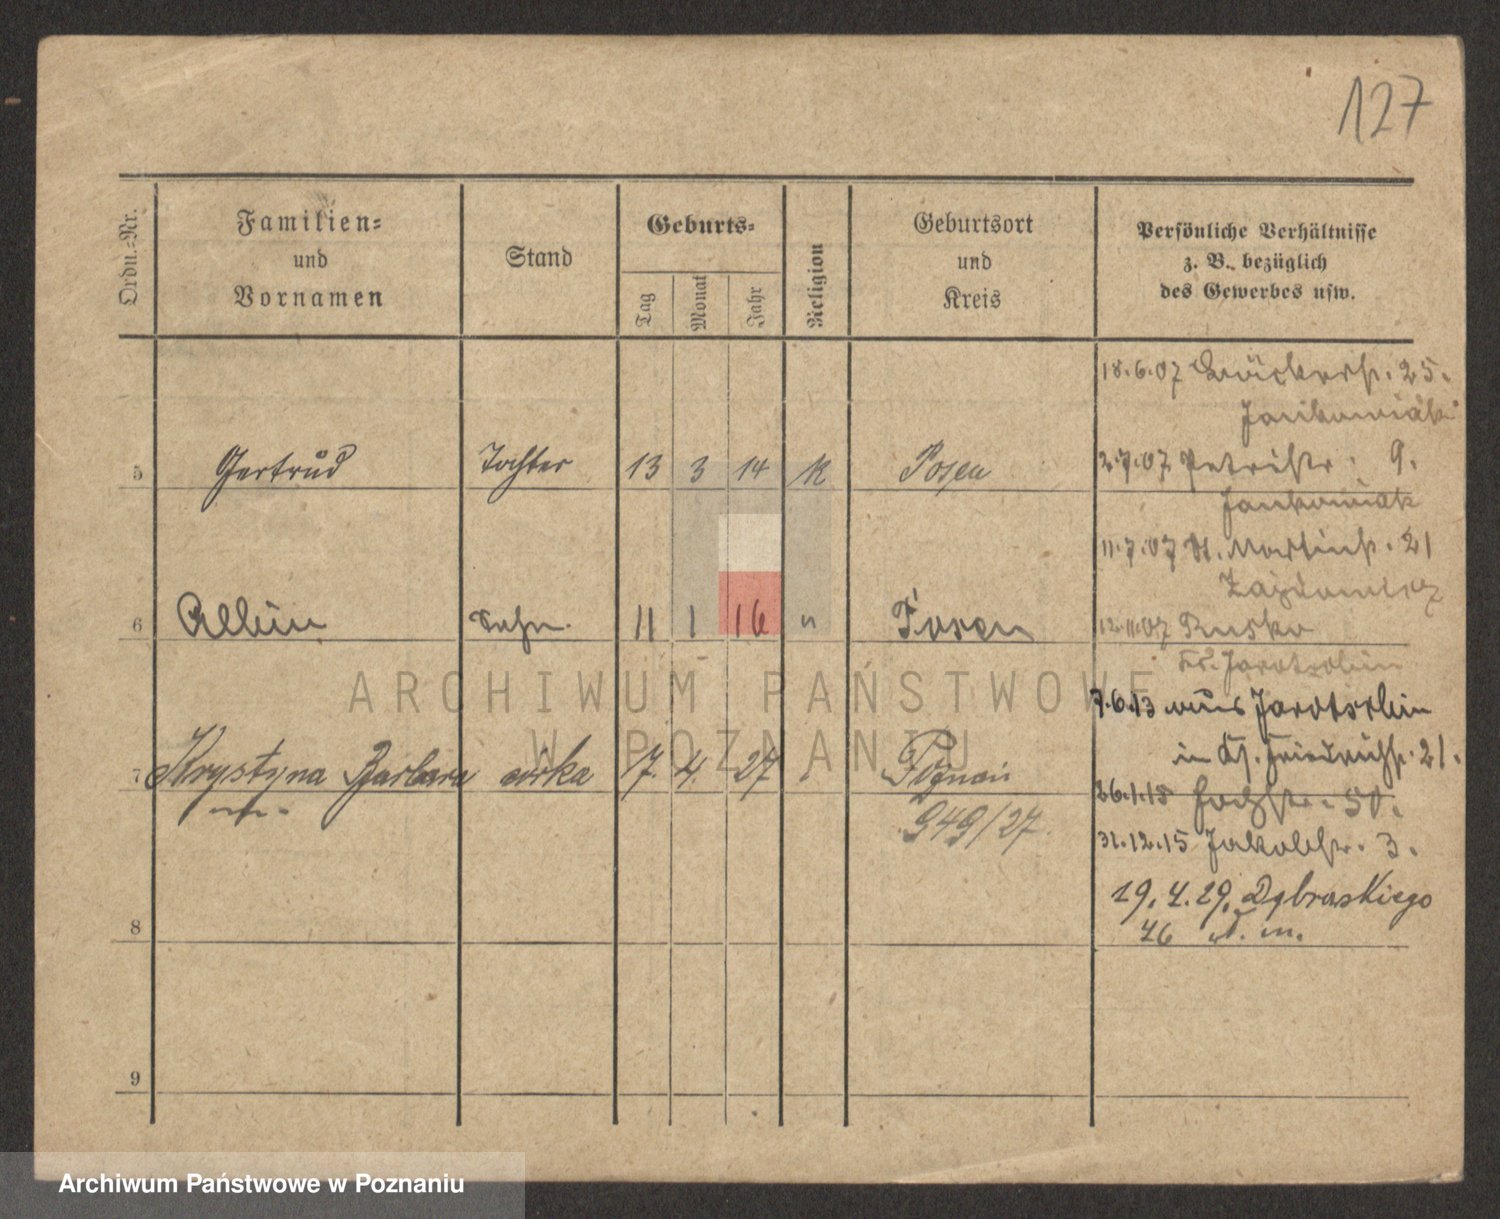 127
Ordn.-Nr.
Familien-
und
Vornamen
Stand
Geburts-
Tag
Monat
Jahr
Religion
Geburtsort
und
Kreis
Persönliche Verhältnisse
z. B. bezüglich
des Gewerbes usw.
5 Gertrud Tochter 13 3 14 K Posen
6 Albin Sohn. 11 1 16 " Posen
7 Krystyna Barbara córka 17. 4. 27 Poznań
949/27.
8
9
18.6.07 Bäckerstr. 25.
Jankowiak
2.7.07 Petristr. 9.
Jankowiak
11.7.07 St. Martinstr. 21
12.11.07 Rusko
Kr. Jarotschin
7.6.13 aus Jarotschin
in Gr. Friedrichstr. 21.
26.1.15 50.
31.12.15 Jakobstr. 3.
19.4.29. Dąbrowskiego
46 w. m.
ARCHIWUM PAŃSTWOWE
W POZNANIU
Archiwum Państwowe w Poznaniu